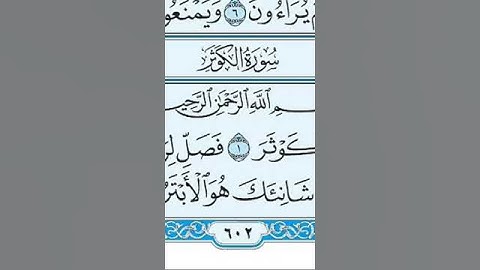 يُرَآءُونَ ٦ وَيَمْنَعُو
سُورَةُ الكَوْثَرِ
ـمِ ٱللَّهِ ٱلرَّحْمَٰنِ ٱلرَّحِيـ
ـكَوْثَرَ ١ فَصَلِّ لِرَ
شَانِئَكَ هُوَ ٱلْأَبْتَرُ
٦٠٢